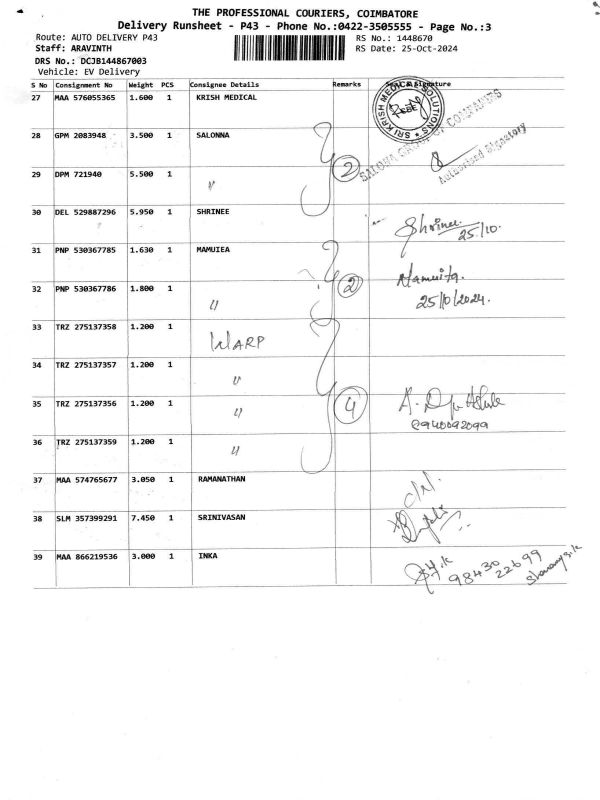 THE PROFESSIONAL COURIERS, COIMBATORE
Delivery Runsheet - P43 - Phone No.:0422-3505555 - Page No.:3
Route: AUTO DELIVERY P43 RS No.: 1448670
Staff: ARAVINTH RS Date: 25-Oct-2024
DRS No.: DCJB144867003
Vehicle: EV Delivery
S No Consignment No Weight PCS Consignee Details Remarks Signature
27 MAA 576055365 1.600 1 KRISH MEDICAL
SRI KRISH MEDICAL SOLUTIONS
28 GPM 2083948 3.500 1 SALONNA
Authorised Signatory
29 DPM 721940 5.500 1 〃 2
30 DEL 529887296 5.950 1 SHRINEE Shrinee
25/10.
31 PNP 530367785 1.630 1 MAMUIEA Mamuita.
32 PNP 530367786 1.800 1 〃 2 25/10/2024.
33 TRZ 275137358 1.200 1 WARP
34 TRZ 275137357 1.200 1 〃
35 TRZ 275137356 1.200 1 〃 4 A.
36 TRZ 275137359 1.200 1 〃
37 MAA 574765677 3.050 1 RAMANATHAN
38 SLM 357399291 7.450 1 SRINIVASAN
39 MAA 866219536 3.000 1 INKA
98430 22699